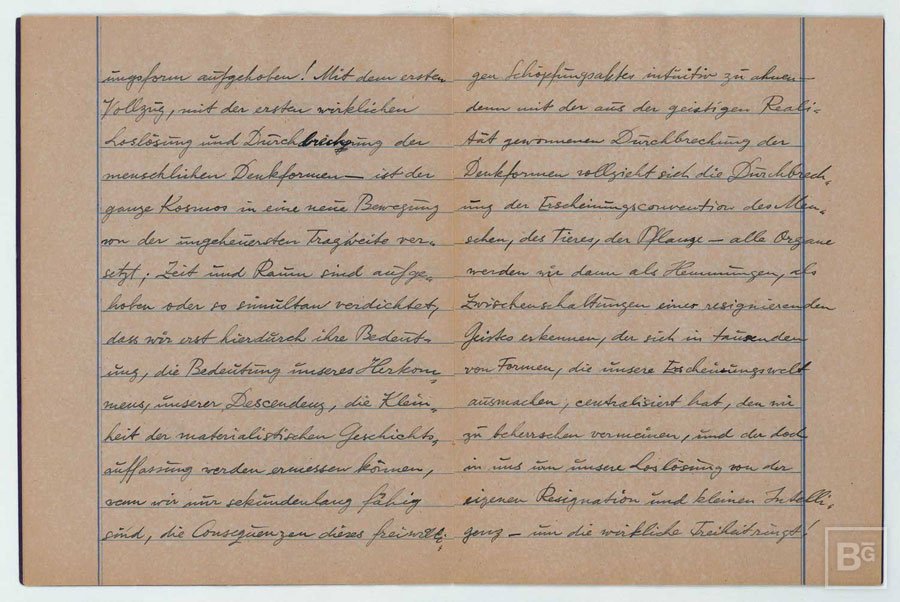 ungsform aufgehoben! Mit dem ersten
Vollzug, mit der ersten wirklichen
Loslösung und Durchbrechung der
menschlichen Denkformen — ist der
ganze Kosmos in eine neue Bewegung
von der ungeheuersten Tragweite ver-
setzt; Zeit und Raum sind aufge-
hoben oder so simultan verdichtet,
dass wir erst hierdurch ihre Bedeut-
ung, die Bedeutung unseres Herkom-
mens, unserer Descendenz, die Klein-
heit der materialistischen Geschichts-
auffassung werden ermessen können,
wenn wir nur sekundenlang fähig
sind, die Consequenzen dieses freiwilli-
gen Schöpfungsaktes intuitiv zu ahnen —
denn mit der aus der geistigen Reali-
tät gewonnenen Durchbrechung der
Denkformen vollzieht sich die Durchbrech-
ung der Erscheinungsconvention des Men-
schen, des Tieres, der Pflanze — alle Organe
werden wir dann als Hemmungen, als
Zwischenschaltungen eines resignierenden
Geistes erkennen, der sich in tausenden
von Formen, die unsere Erscheinungswelt
ausmachen, centralisiert hat, den wir
zu beherrschen vermeinen, und der doch
in uns um unsere Loslösung von der
eigenen Resignation und kleinen Intelli-
genz — um die wirkliche Freiheit ringt!
BG